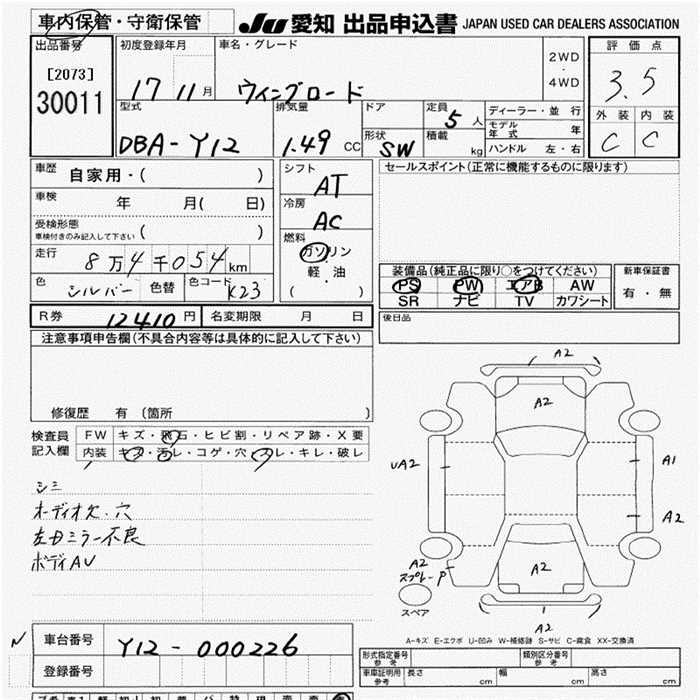 車内保管・守衛保管
JU 愛知 出品申込書 JAPAN USED CAR DEALERS ASSOCIATION
出品番号
[2073]
30011
初度登録年月
17 11 月
車名・グレード
ウィングロード
2WD
・
4WD
評価点
3.5
外装 内装
C C
型式
DBA-Y12
排気量
1.49 CC
ドア
形状
SW
定員
5 人
積載
kg
ディーラー・並行
モデル年式 年
ハンドル 左・右
車歴
自家用・( )
車検
年 月( 日)
受検形態
車検付きのみ記入して下さい ( )
走行
8万4千054km
色
シルバー
色替
色コード
K23
シフト
AT
冷房
AC
燃料
ガソリン
・
軽・油
( )
セールスポイント(正常に機能するものに限ります)
装備品(純正品に限り○をつけてください)
PS PW エアB AW
SR ナビ TV カワシート
新車保証書
有・無
後日品
R券 12410 円
名変期限 月 日
注意事項申告欄(不具合内容等は具体的に記入して下さい)
修復歴 有 (箇所 )
検査員
記入欄
FW キズ・飛石・ヒビ割・リペア跡・X要
内装 キズ・汚レ・コゲ・穴・スレ・キレ・破レ
シミ
オーディオ欠.穴
左Dミラー不良
ボディAU
A2
A2
UA2
A1
A2
A2
スプレーP
A2
スペア
A2
A-キズ E-エクボ U-凹み W-補修跡 S-サビ C-腐食 XX-交換済
N
車台番号
Y12-000226
登録番号
形式指定番号
参考
類別区分番号
参考
車庫証明用
参考
長さ cm
幅 cm
高さ cm